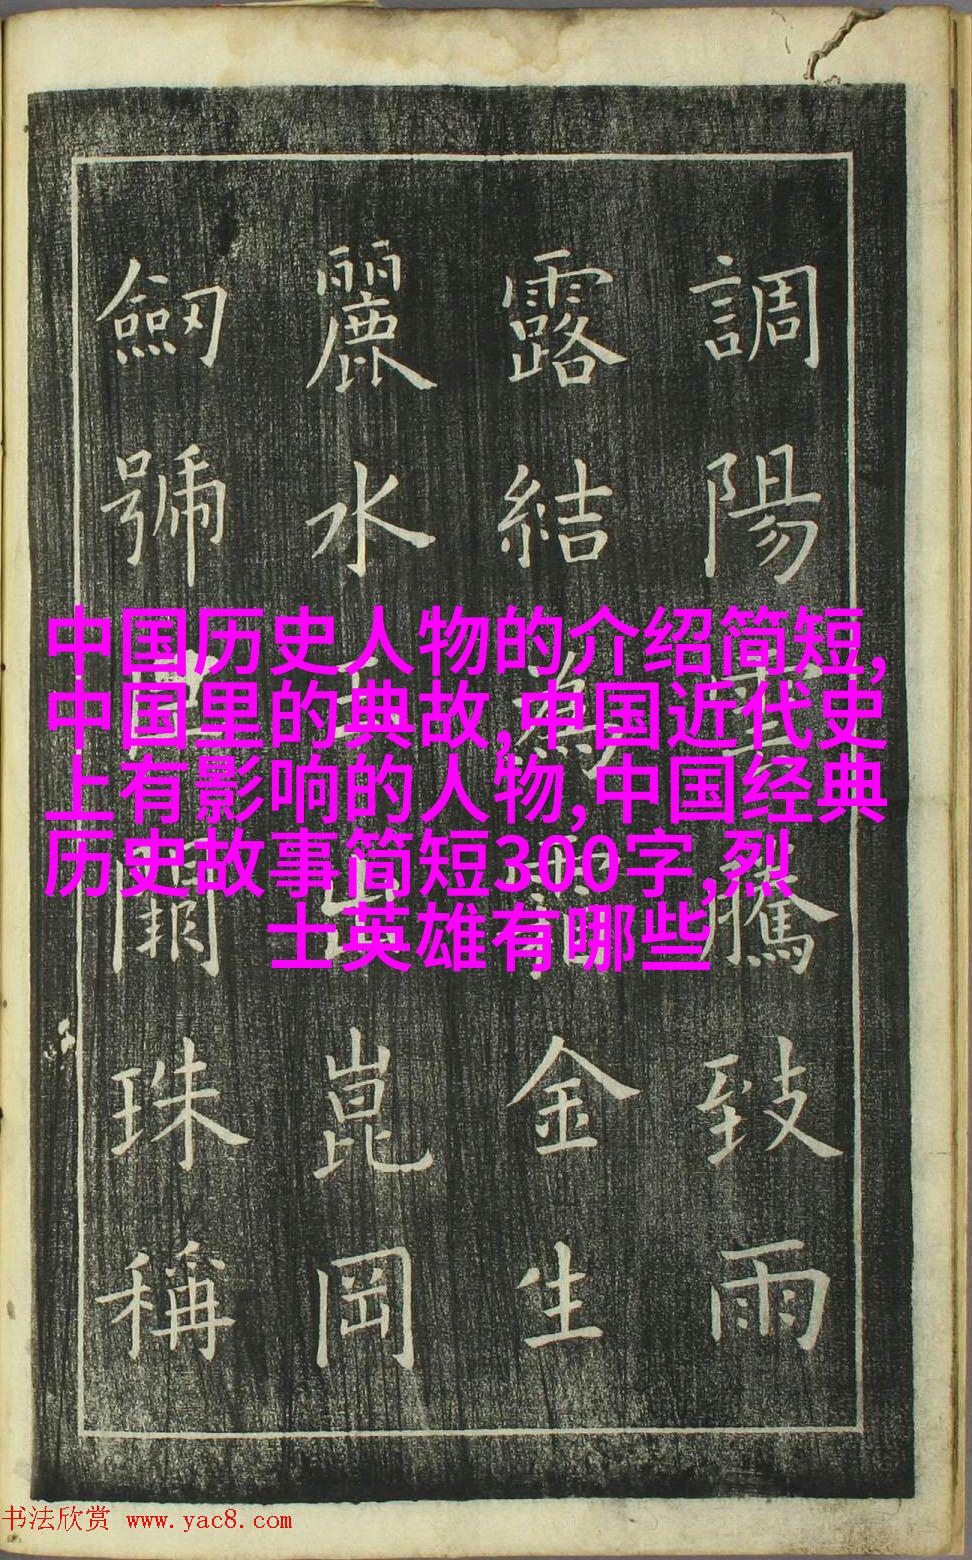 調陽雲騰致雨
露結為霜金生
麗水玉出崑岡
劒號巨闕珠稱
中国历史人物的介绍简短,
中国里的典故,中国近代史
上有影响的人物,中国经典
历史故事简短300字,烈
士英雄有哪些
书法欣赏 www.yac8.com